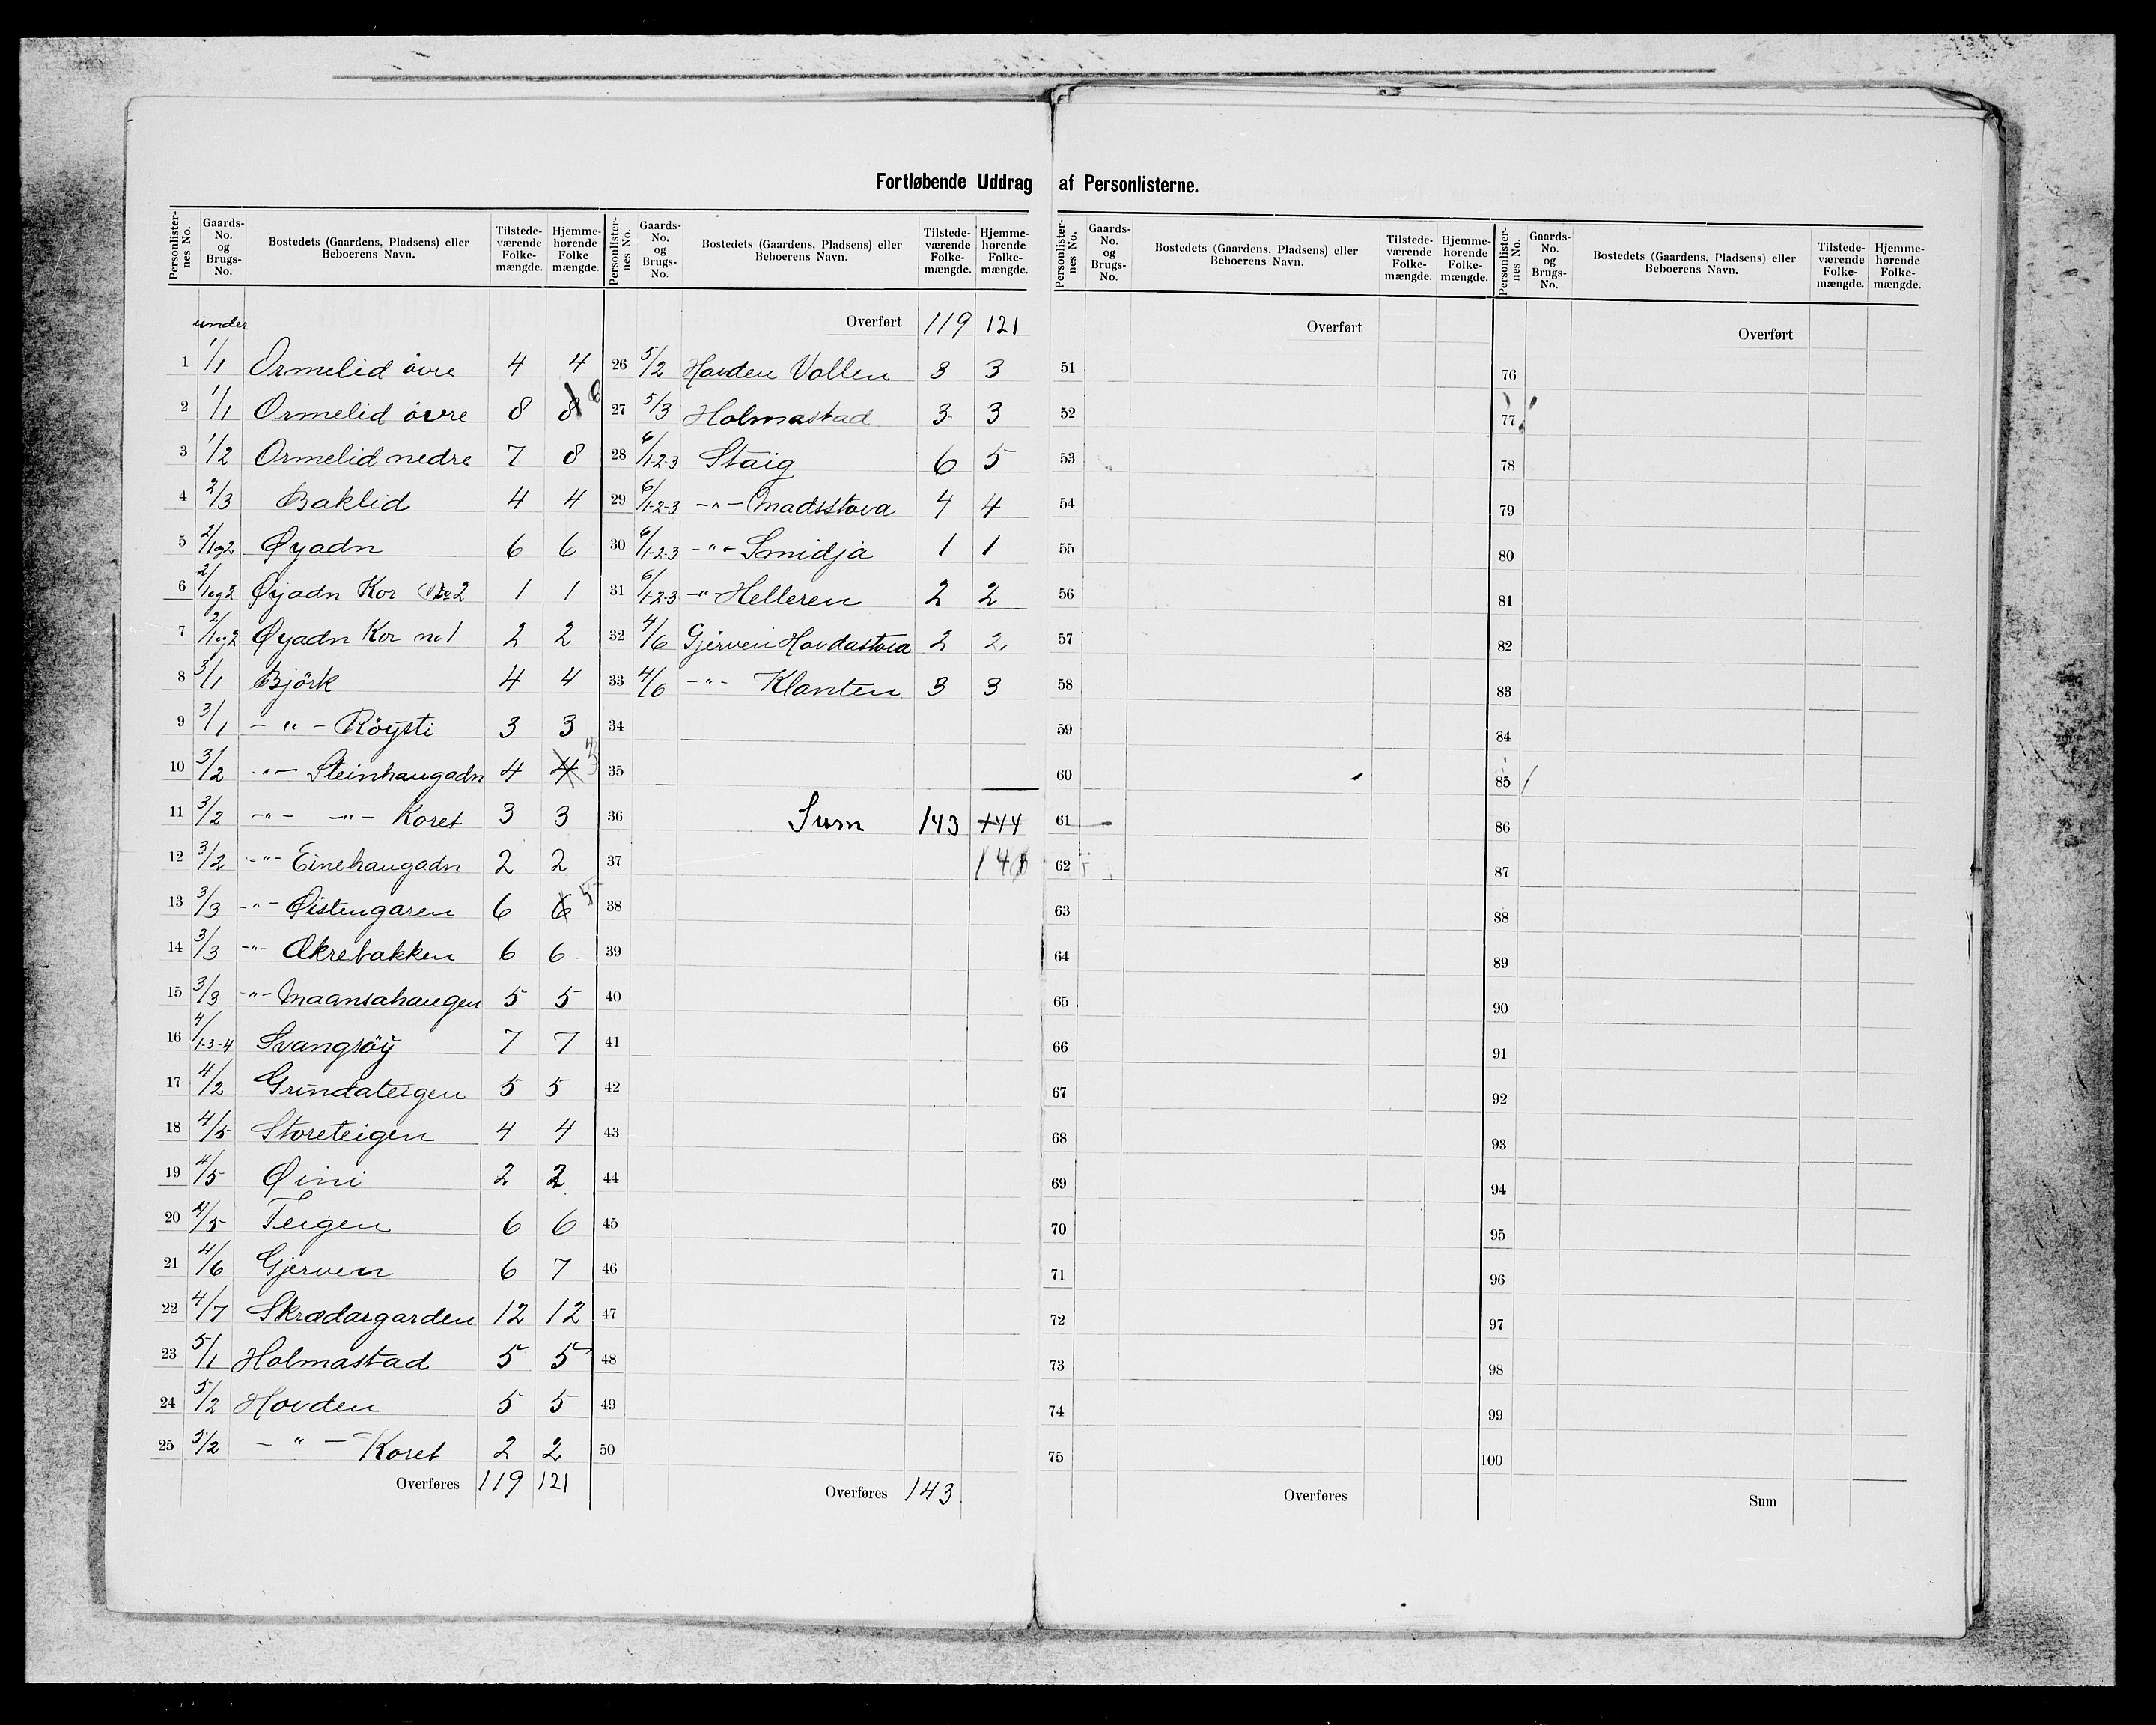 Fortløbende Uddrag af Personlisterne.
Personlisternes No. Gaards-No. og Brugs-No. Bostedets (Gaardens, Pladsens) eller Beboerens Navn. Tilstedeværende Folkemængde. Hjemmehørende Folkemængde.
under
1 1/1 Ormelid övre 4 4
2 1/1 Ormelid övre 8 8 6
3 1/2 Ormelid nedre 7 8
4 2/3 Baklid 4 4
5 2/1og2 Øyadn 6 6
6 2/1og2 Øyadn Kor No 2 1 1
7 2/1og2 Øyadn Kor no 1 2 2
8 3/1 Björk 4 4
9 3/1 - " - Röysti 3 3
10 3/2 - " - Steinhaugadn 4 4
11 3/2 - " - - " - Koret 3 3
12 3/2 - " - Einehaugadn 2 2
13 3/3 - " - Øistengaren 6 6 5
14 3/3 - " - Ækrebakken 6 6
15 3/3 - " - Maansahaugen 5 5
16 4/1-3-4 Svangsöy 7 7
17 4/2 Grundateigen 5 5
18 4/5 Storeteigen 4 4
19 4/5 Øini 2 2
20 4/5 Teigen 6 6
21 4/6 Gjerven 6 7
22 4/7 Skrædargarden 12 12
23 5/1 Holmastad 5 5
24 5/2 Hovden 5 5
25 5/2 - " - Koret 2 2
Overføres 119 121
Personlisternes No. Gaards-No. og Brugs-No. Bostedets (Gaardens, Pladsens) eller Beboerens Navn. Tilstedeværende Folkemængde. Hjemmehørende Folkemængde.
Overført 119 121
26 5/2 Hovden Vollen 3 3
27 5/3 Holmastad 3 3
28 6/1-2-3 Staig 6 5
29 6/1-2-3 - " - Madsstova 4 4
30 6/1-2-3 - " - Smidja 1 1
31 6/1-2-3 - " - Helleren 2 2
32 4/6 Gjerven Hovdastova 2 2
33 4/6 - " - Klanten 3 3
34
35
36 Sum 143 144
37 140
38
39
40
41
42
43
44
45
46
47
48
49
50
Overføres 143
Personlisternes No. Gaards-No. og Brugs-No. Bostedets (Gaardens, Pladsens) eller Beboerens Navn. Tilstedeværende Folkemængde. Hjemmehørende Folkemængde.
Overført
51
52
53
54
55
56
57
58
59
60
61
62
63
64
65
66
67
68
69
70
71
72
73
74
75
Overføres
Personlisternes No. Gaards-No. og Brugs-No. Bostedets (Gaardens, Pladsens) eller Beboerens Navn. Tilstedeværende Folkemængde. Hjemmehørende Folkemængde.
Overført
76
77
78
79
80
81
82
83
84
85
86
87
88
89
90
91
92
93
94
95
96
97
98
99
100
Sum